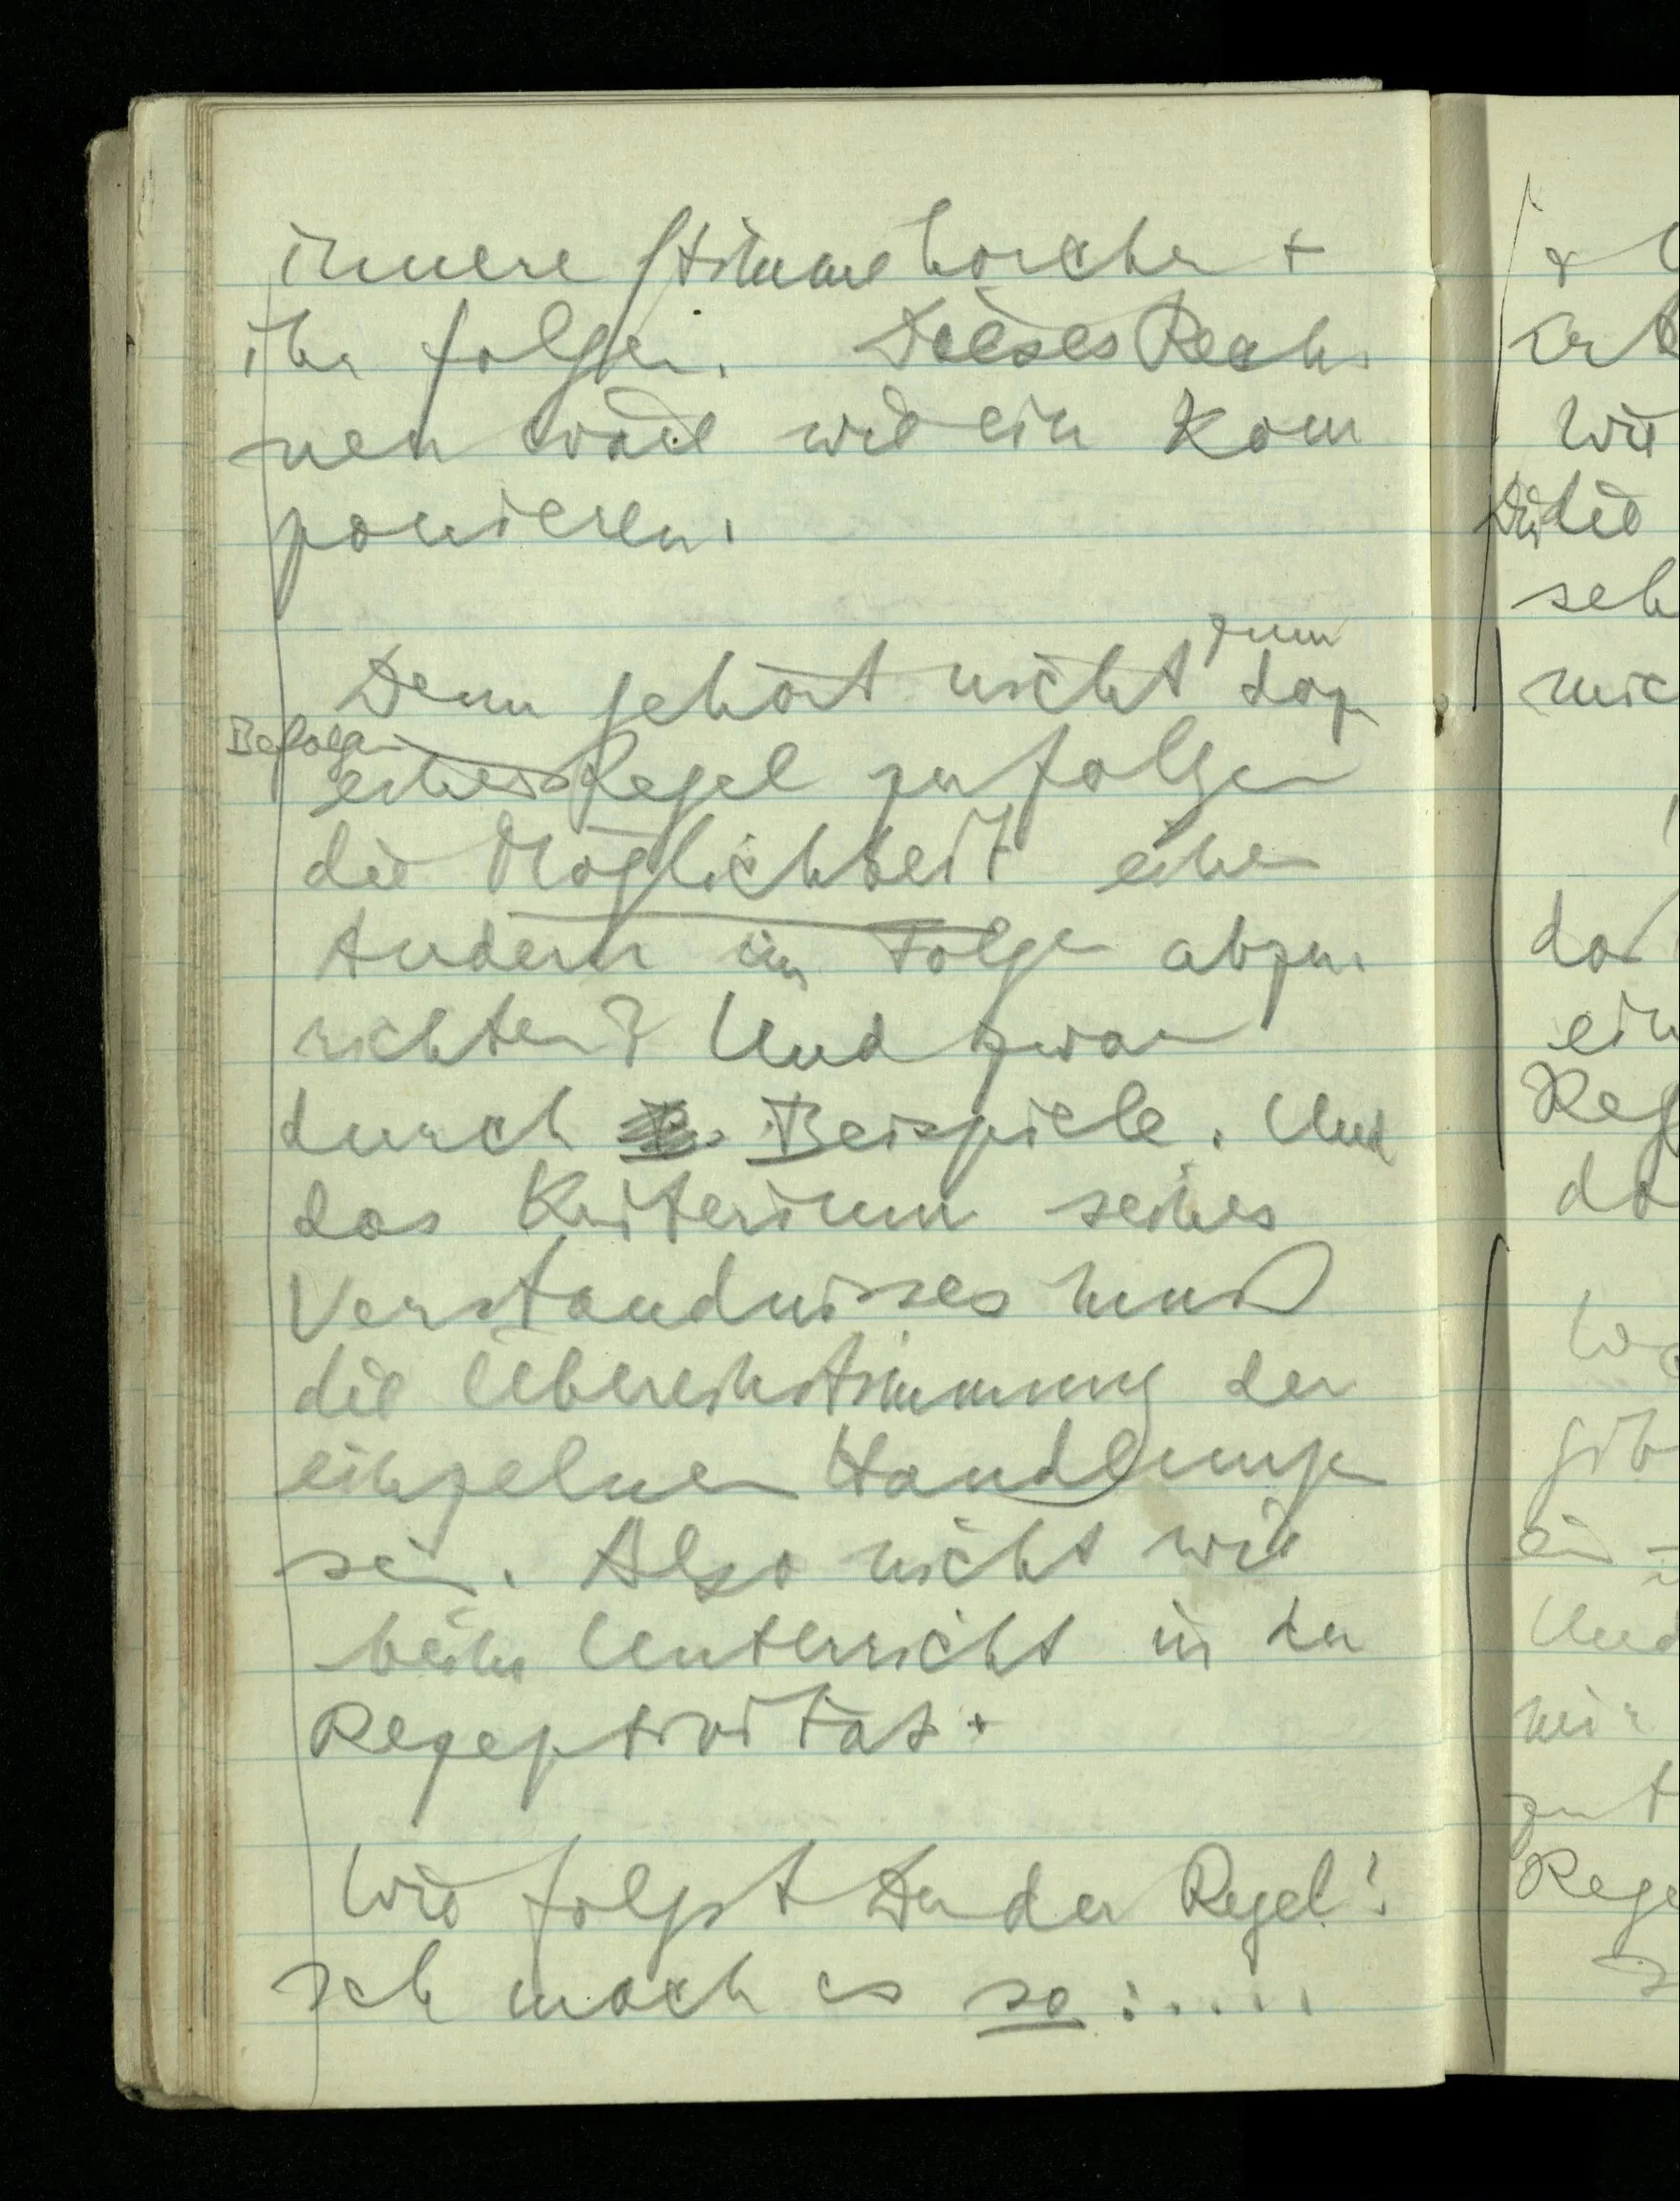 innere Stimme horchen +
ihr folgen. Dieses Rech-
nen wäre wie ein Kom
ponieren.
zum
Denn gehört nicht dazu
Befolgen
einer Regel zu folgen
die Möglichkeit einen
Andern im Folgen abzu-
richten? Und zwar
durch Beispiele. Und
das Kriterium seines
Verständnisses muß
die Übereinstimmung der
einzelnen Handlungen
sein. Also nicht wie
beim Unterricht in der
Rezeptivität.
Wie folgst Du der Regel?
Ich mach es so : . . . . .
& 
Wie
Die
seh
mic
ein
Reg
da
gib
Und
mir
Rege